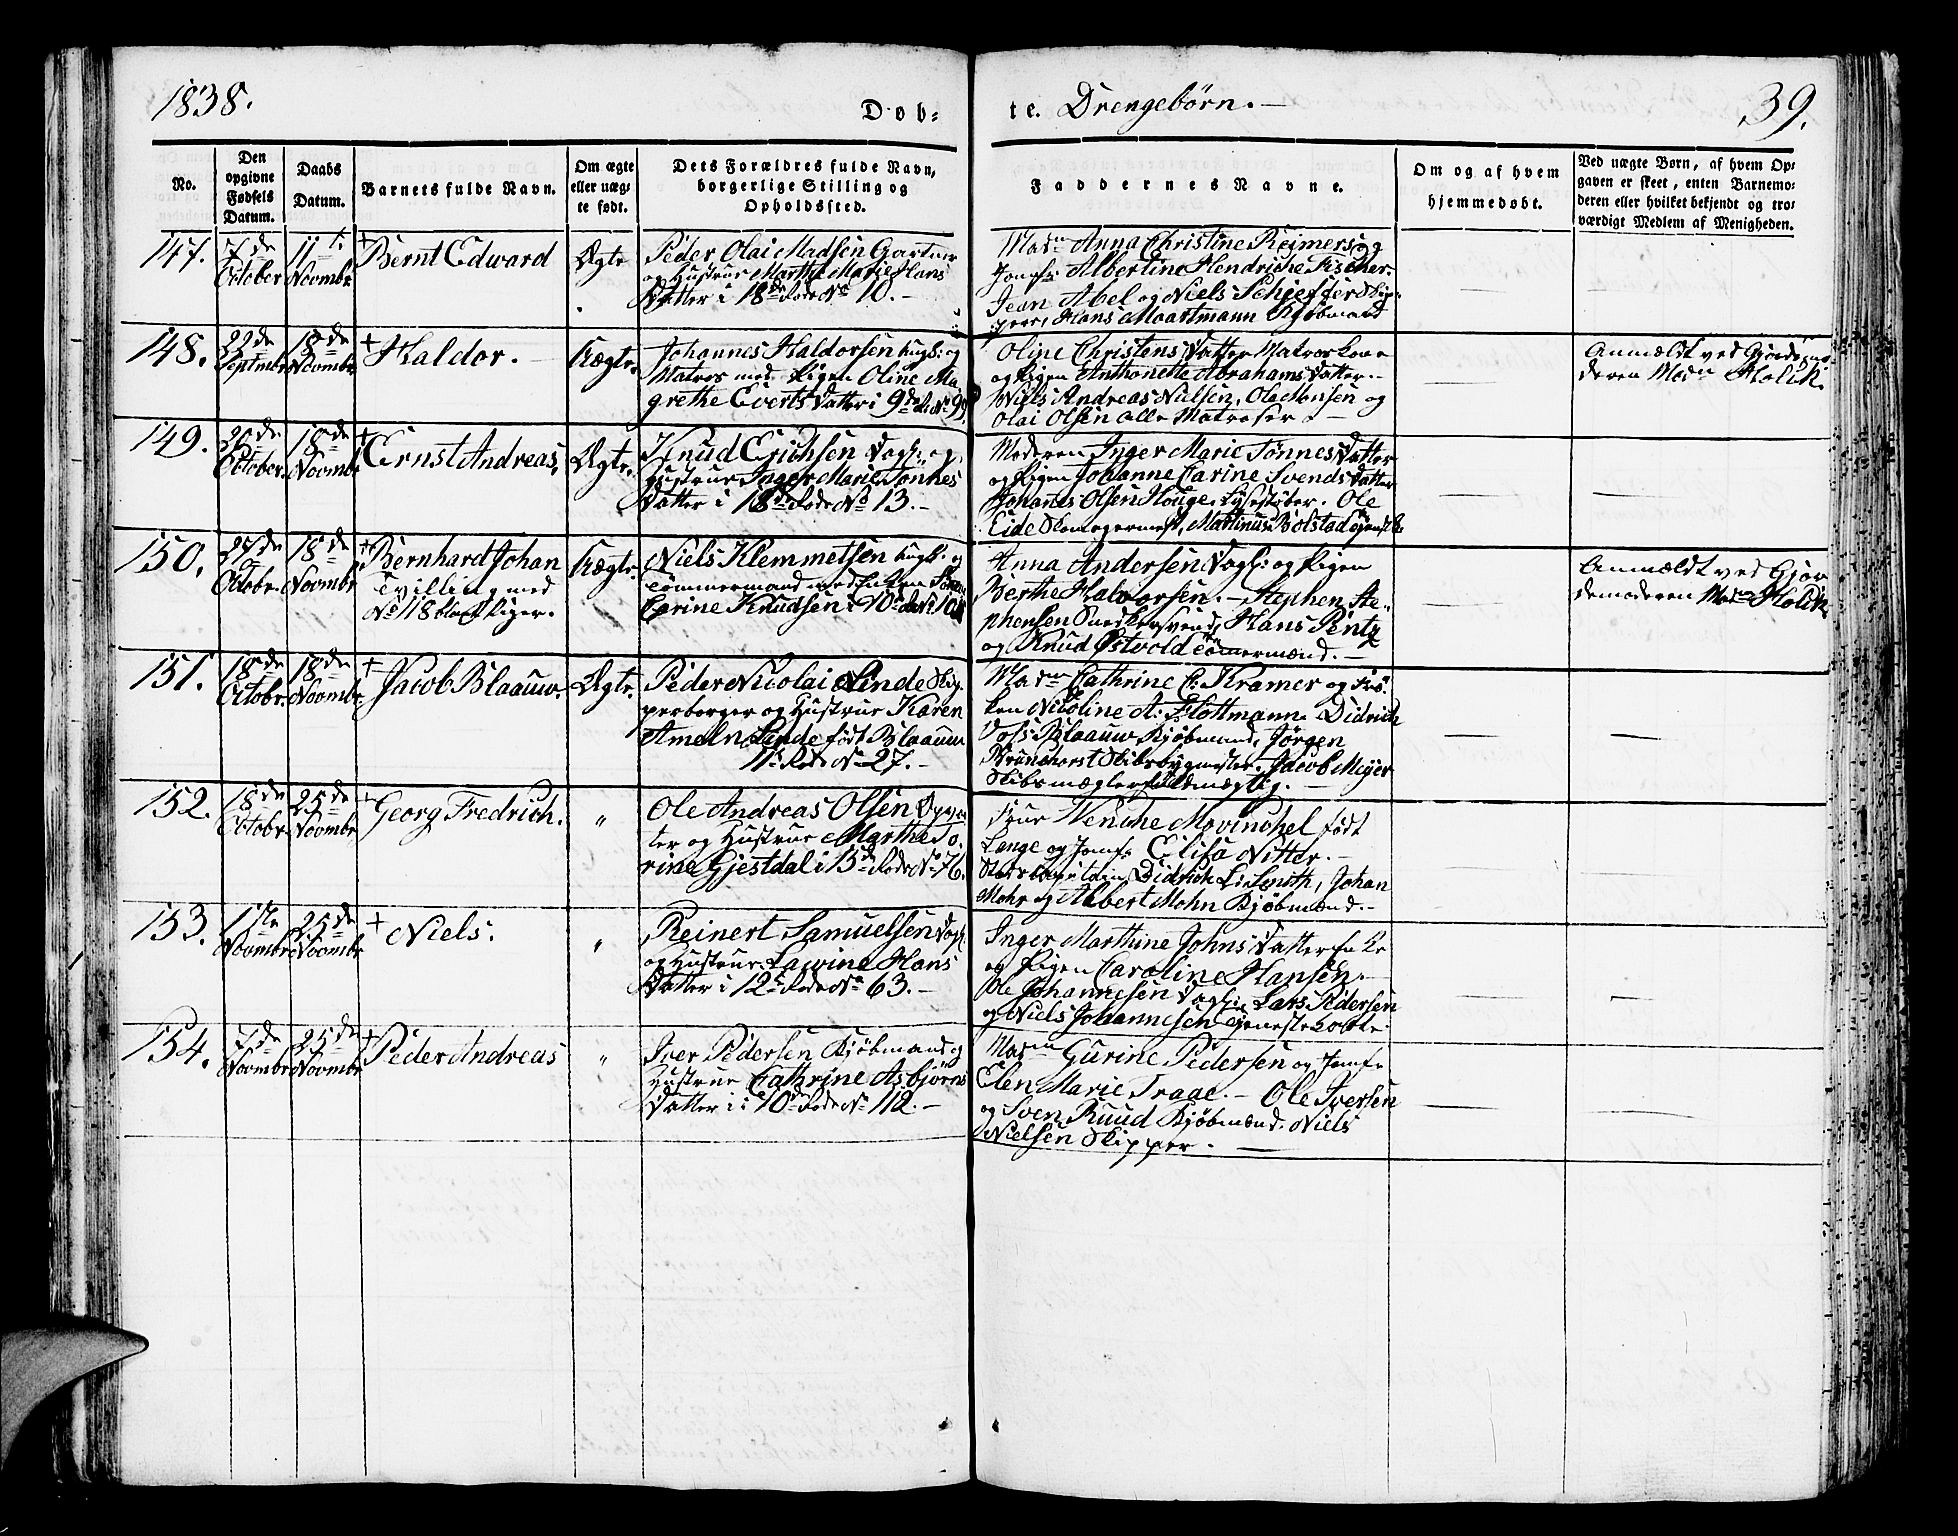 1838.
Døb-
te. Drengebørn.—
39.
No.
Den opgivne Fødsels Datum.
Daabs Datum.
Barnets fulde Navn.
Om ægte eller uægte født.
Dets Forældres fulde Navn, borgerlige Stilling og Opholdssted.
Faddernes Navne.
Om og af hvem hjemmedøbt.
Ved uægte Børn, af hvem Opgaven er skeet, enten Barnemoderen eller hvilket bekjendt og troværdigt Medlem af Menigheden.
147.
7de October
11te Novmbr
+ Bernt Edward
Ægte
Peder Olai Madsen Gartner
og Hustrue Marthe Marie Hans
Datter i 18de Rode No 10.—
Madm Anna Christine Reimers og
Jomfr: Albertine Hendriche Fischer.
Jean Abel og Niels Schieffer Skip-
pere, Hans Maartmann Kjøbmand
148.
29de Septmbr
18de Novmbr
+ Haldor.
Uægte.
Johannes Haldorsen ungk: og
Matros med Pigen Oline Ma
grethe Everts Datter i 9de R: No 99
Oline Christens Datter Matroskone
og Pigen Anthonette Abrahams Datter.—
Niels Andreas Nielsen, Ola Monsen og
Olai Olsen alle Matroser.—
Anmeldt ved Gjordemo
deren Madm Holck.
149.
20de October
18de Novmbr
+ Ernst Andreas,
Ægte.
Knud Erichsen Dagk: og
Hustrue Inger Marie Tönnes
Datter i 18de Rode No 13.—
Moderen Inger Marie Tönnes Datter
og Pigen Johanne Carine Svends Datter
Johanes Olsen Houge, Lysestøber. Ole
Eide Skomagermest, Martinus Bolstad
150.
27de Octobr.
18de Novmbr
+ Bernhard Johan
Tvilling med
No 118 blant Piger.
Uægte
Niels Klemmetsen ungk: og
Tömmermand med Enken
Carine Knudsen i 10de R: No
Anna Andersen Dagk: og Pigen
Berthe Halvorsen.—Stephen Ste-
phensen Snedkersvend, Hans Pintz
og Knud Østvold Tömmermænd.—
Anmældt ved Gjor
demoderen Madm Holck
151.
18de Octobr.
18de Novmbr.
+ Jacob Blaauw.
Ægte.
Peder Nicolai Linde Skip-
perborger og Hustrue Karen
Ameln Linde født Blaauw
11te Rode No 27.—
Madm Cathrine C: Kramer og Frö-
ken Nicoline A: Plottmann. Didrich
Voss Blaauw Kjøbmand, Jørgen
Brunchorst Skibsbygmester. Jacob Meyer
Skibsmæglerfuldmægtig.—
152.
18de Octobr.
25de Novmbr
+ Georg Fredrich.
„
Ole Andreas Olsen
og Hustrue Marthe To-
rine Gjestdal i 15de Rode No 76.
Frue Wenche Mowinchel født
Lange og Jomfr Elisa Nitter.—
Didrich L: Smith, Johan
Mohr og Albert Mohn Kjøbmænd.—
153.
1ste Novmbr.
25de Novmbr
+ Niels.
„
Reinert Samuelsen Dagk:
og Hustrue Lavine Hans
Datter i 12te Rode No 63.—
Inger Marthine Johns Datter Enke
og Pigen Caroline Hansen.—
Ole Johannesen Dagk: Lars Pedersen
og Niels Johannesen Tjenestekarle.
154.
7de Novmbr
25de Novmbr
+ Peder Andreas
„
Iver Pedersen Kjøbmand og
Hustrue Cathrine Asbjörns
Datter i: 10de Rode No 112.—
Madm Gurine Pedersen og Jomfr
Elen Marie Traae.—Ole Iversen
og Sven Ruud Kjøbmænd. Niels
Nielsen Skipper.—